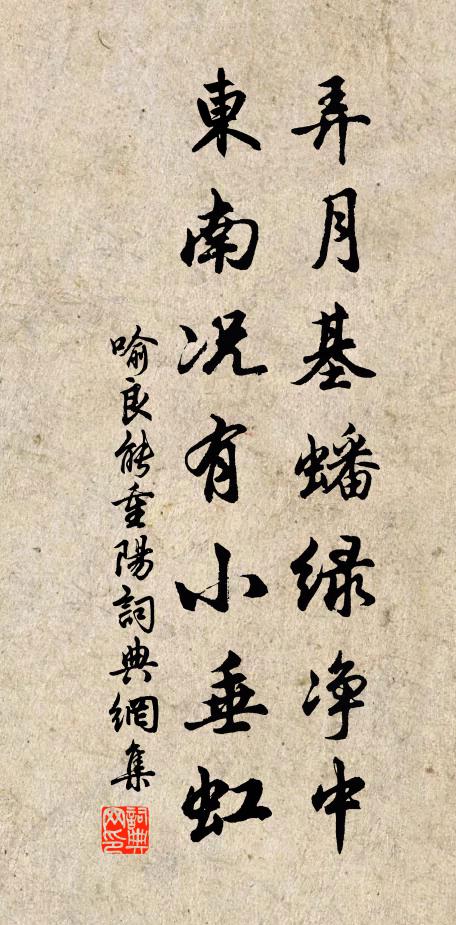 弄月基蟠绿净中
東南况有小垂虹
喻良能重陽詞典網集
詞典網印